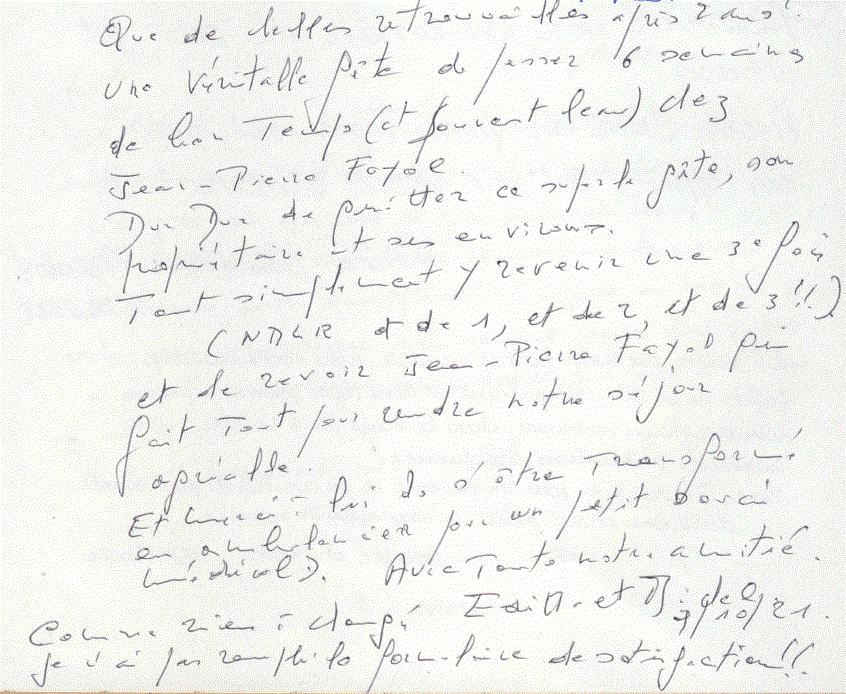 Que de belles retrouvailles après 2 ans !
Une véritable fête de passer 6 semaines
de bon Temps (et souvent beau) chez
Jean-Pierre Fayol.
Dur Dur de quitter ce superbe gîte, son
propriétaire et ses environs.
Tout simplement y revenir une 3e fois
(NDLR et de 1, et de 2, et de 3 !!)
et de revoir Jean-Pierre Fayol qui
fait Tout pour rendre notre séjour
agréable.
Et merci à lui de s'être Transformé
en ambulancier pour un petit souci
médical).  Avec Toute notre amitié.
Comme rien à changé  et  /10/21.
je n'ai pas rempli le formulaire de satisfaction !!